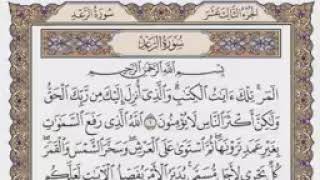 الجزء الثالث عشر
سورة الرعد
سورة الرعد
بسم الله الرحمن الرحيم
المر تلك ءايت الكتب والذي أنزل إليك من ربك الحق
ولكن أكثر الناس لا يؤمنون ١ الله الذي رفع السموت
بغير عمد ترونها ثم استوى على العرش وسخر الشمس والقمر
كل يجري لأجل مسمى يدبر الأمر يفصل الأيت لعلكم